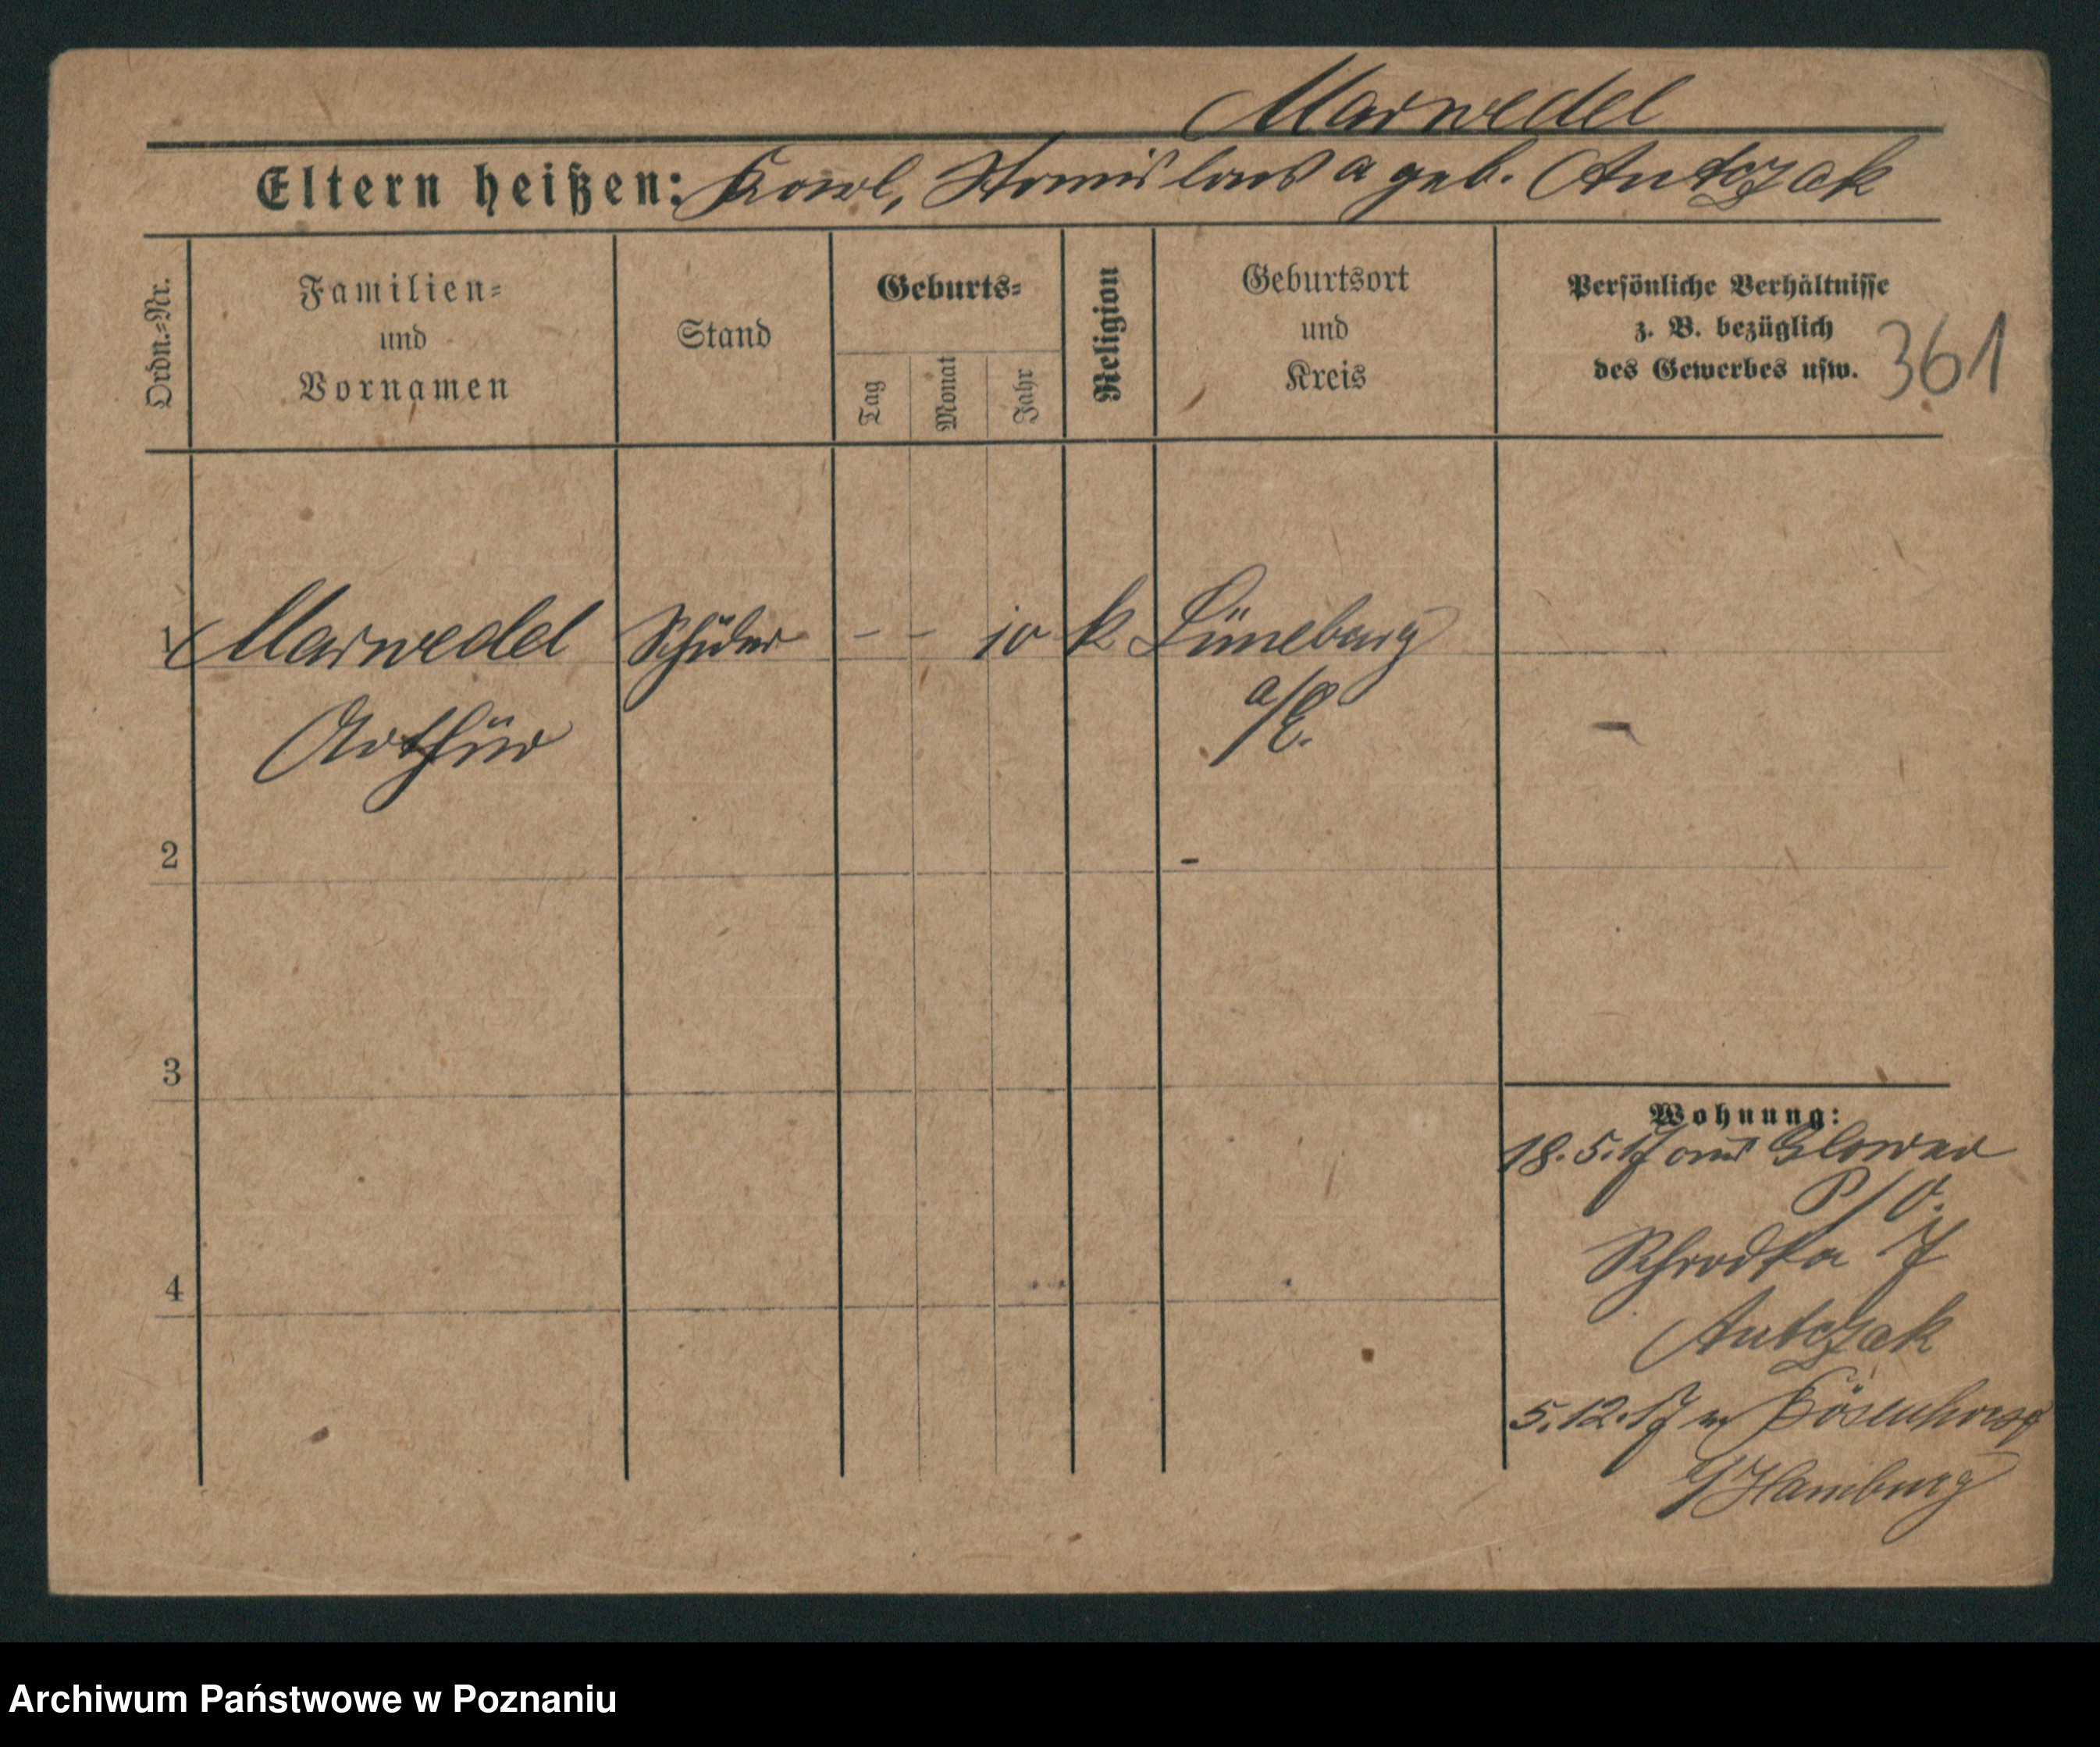 Marwedel
Eltern heißen: Karl, Stanislawa geb. Antczak
Ordn.-Nr.
Familien-
und
Vornamen
Stand
Geburts-
Tag
Monat
Jahr
Religion
Geburtsort
und
Kreis
Persönliche Verhältnisse
z. B. bezüglich
des Gewerbes usw.
361
1 Marwedel Schüler - - 10 k Lüneburg
Arthur a/E.
2
3
4
Wohnung:
18.5.17 aus Glowno
P/O.
Schrodka 7
Antczak
5.12.17 n
/Hamburg
Archiwum Państwowe w Poznaniu